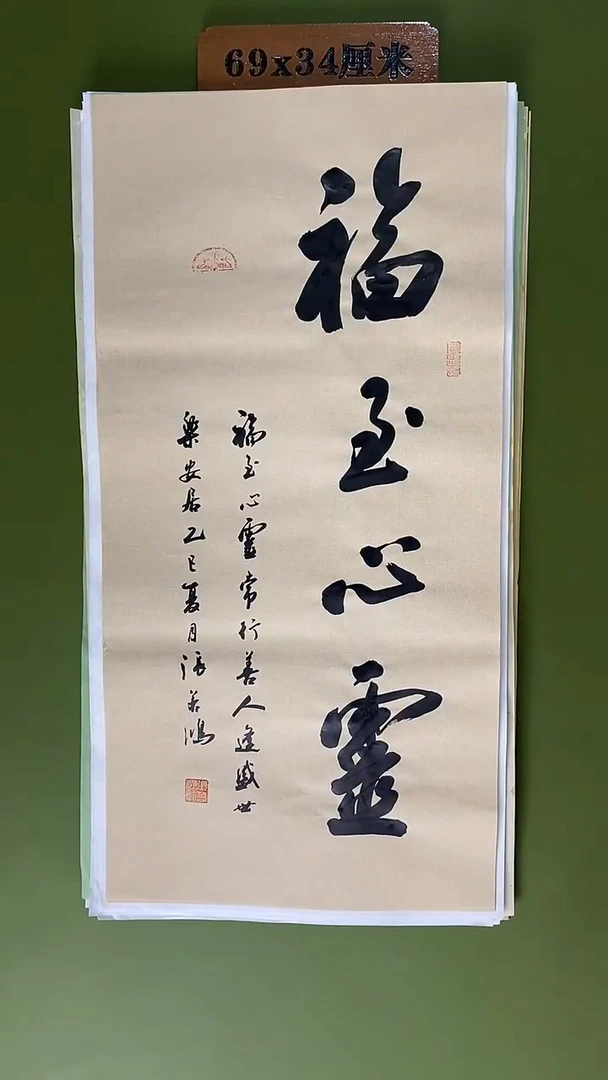 69x34厘米
福至心靈
福至心靈常行善人逢盛世
樂安居乙巳夏月張若鴻